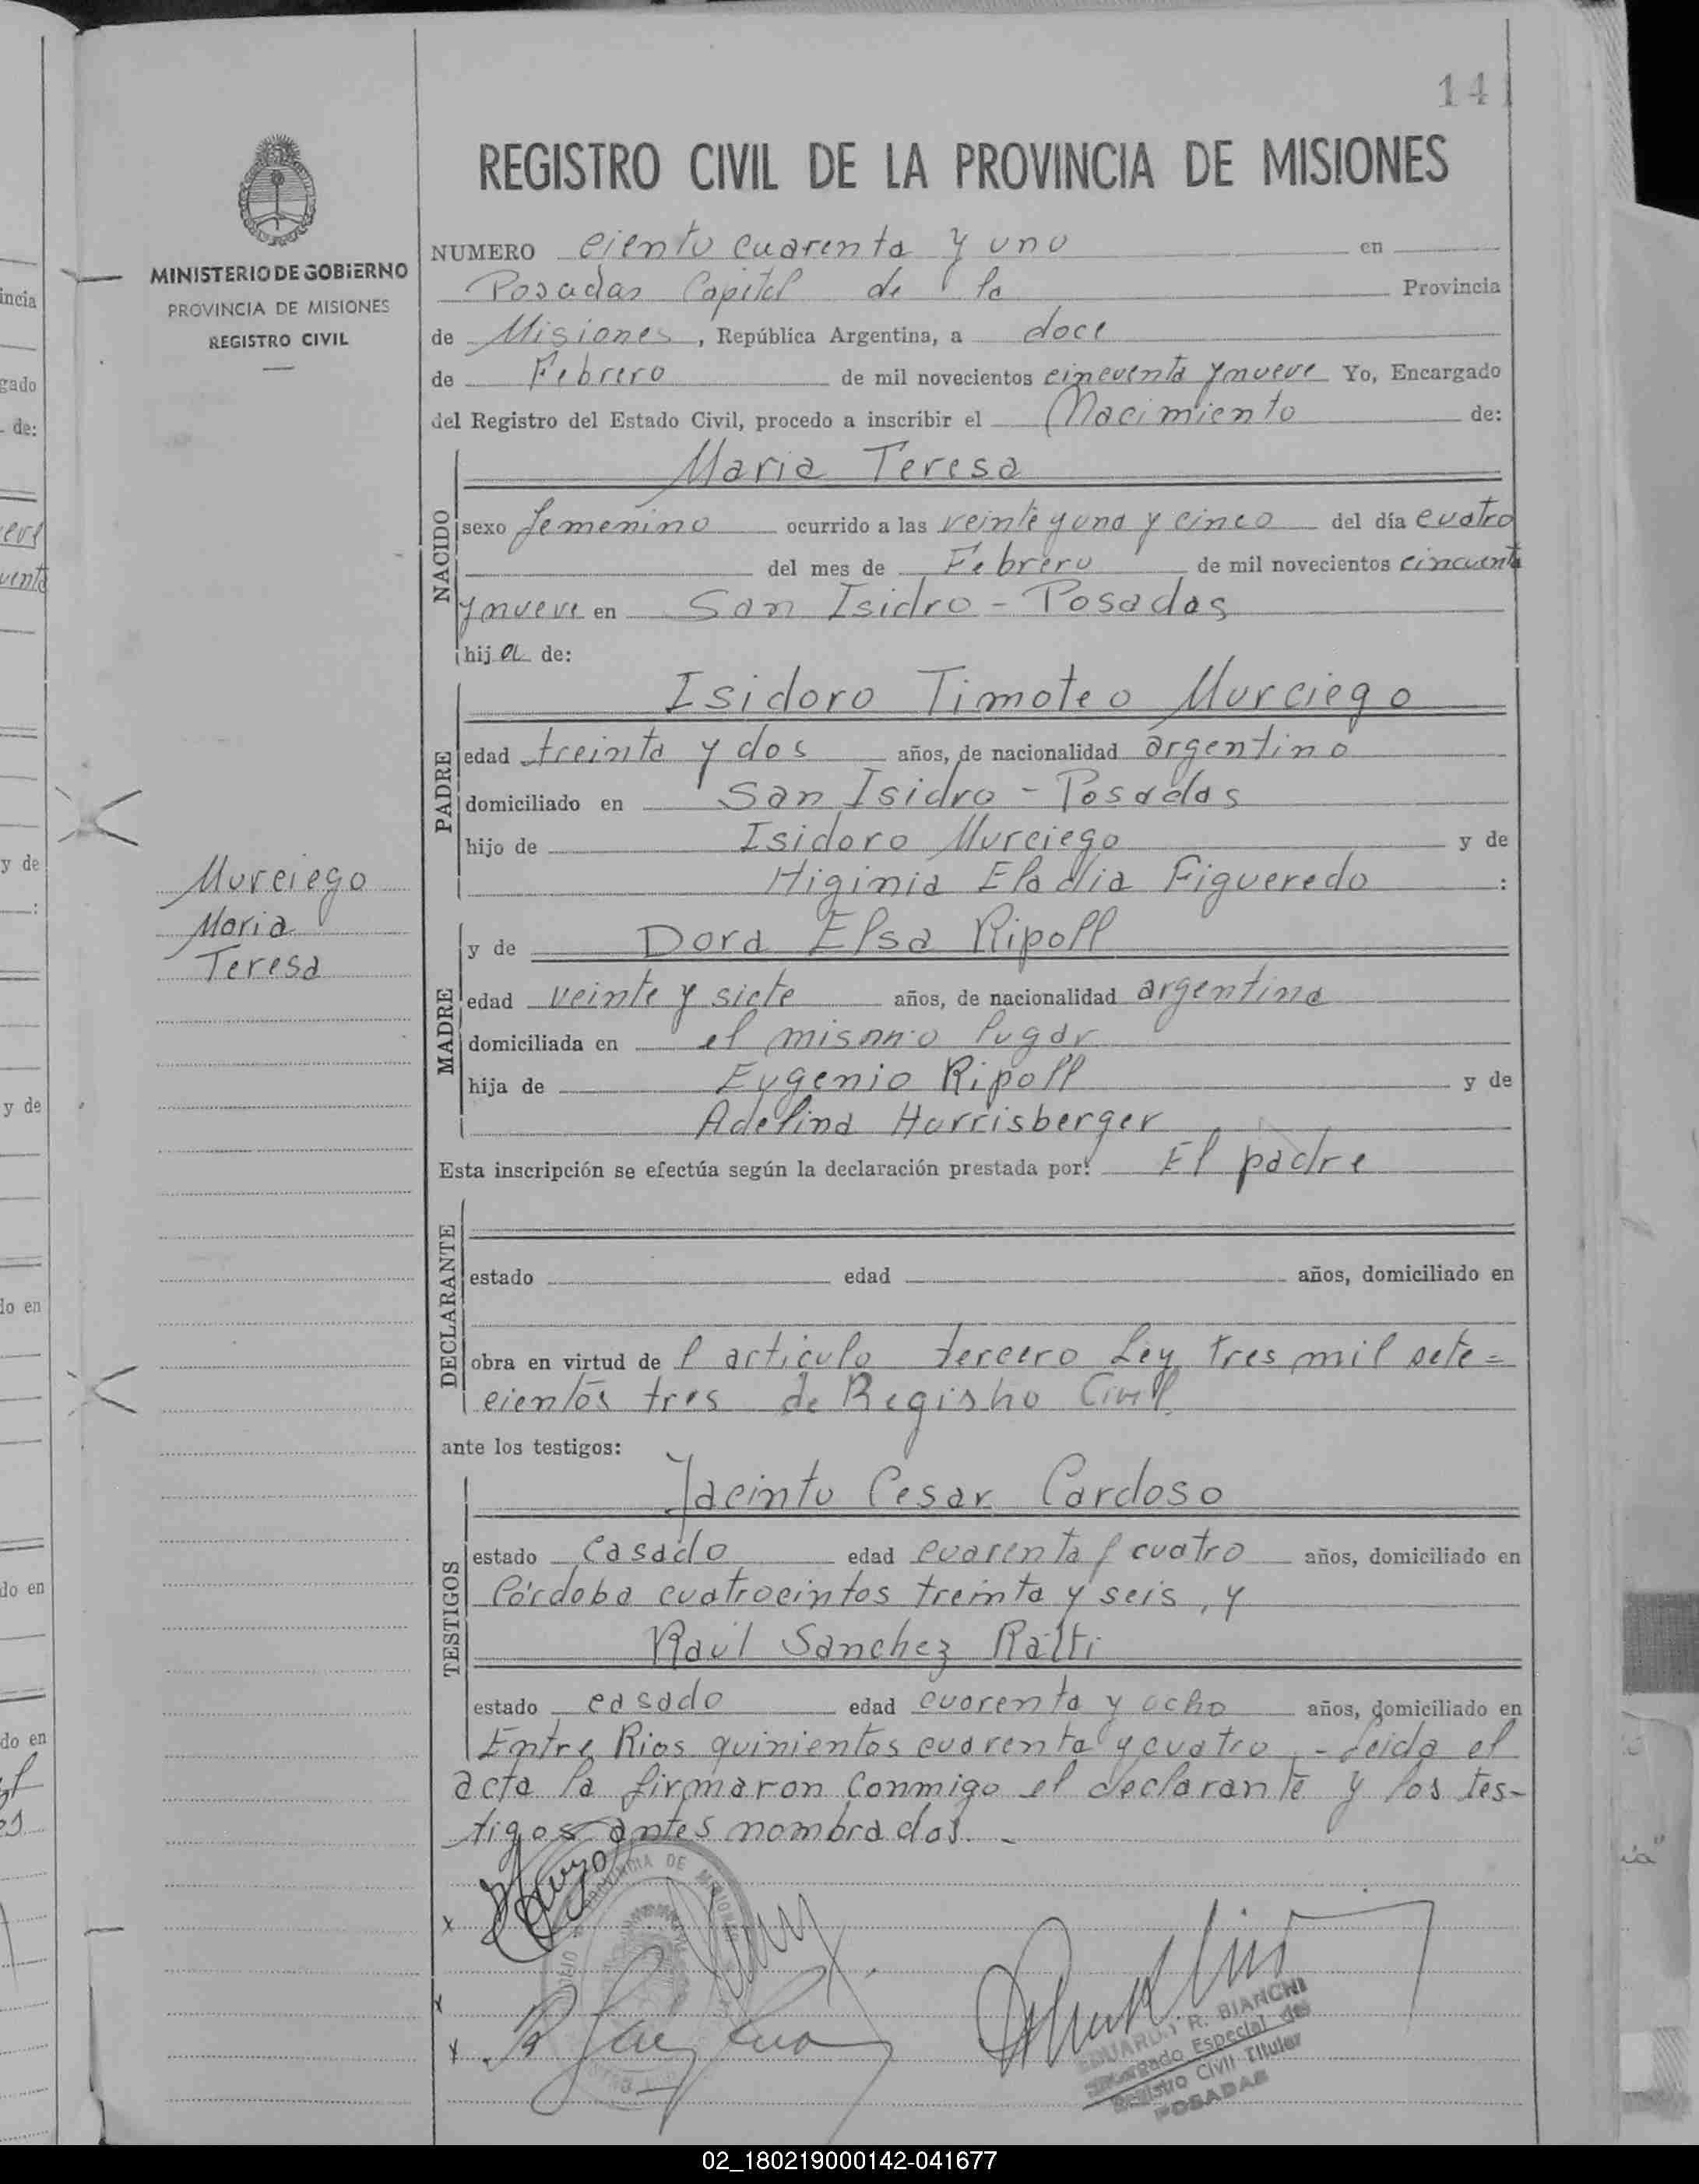 141
REGISTRO CIVIL DE LA PROVINCIA DE MISIONES
MINISTERIO DE GOBIERNO
PROVINCIA DE MISIONES
REGISTRO CIVIL
NUMERO ciento cuarenta y uno en
Posadas Capital de la Provincia
de Misiones, República Argentina, a doce
de Febrero de mil novecientos cincuenta y nueve Yo, Encargado
del Registro del Estado Civil, procedo a inscribir el Nacimiento de:
NACIDO
Maria Teresa
sexo femenino ocurrido a las veinte y una y cinco del día cuatro
del mes de Febrero de mil novecientos cincuenta
y nueve en San Isidro - Posadas
hija de:
PADRE
Isidoro Timoteo Murciego
edad treinta y dos años, de nacionalidad argentino
domiciliado en San Isidro - Posadas
hijo de Isidoro Murciego y de
Higinia Eladia Figueredo :
Murciego
Maria
Teresa
MADRE
y de Dora Elsa Ripoll
edad veinte y siete años, de nacionalidad argentina
domiciliada en el mismo lugar
hija de Eugenio Ripoll y de
Adelina Harrisberger
Esta inscripción se efectúa según la declaración prestada por: El padre
DECLARANTE
estado edad años, domiciliado en
obra en virtud de l articulo tercero Ley tres mil sete=
cientos tres de Registro Civil.
ante los testigos:
TESTIGOS
Jacinto Cesar Cardoso
estado casado edad cuarenta y cuatro años, domiciliado en
Córdoba cuatrocintos treinta y seis, y
Raúl Sanchez Ratti
estado casado edad cuarenta y ocho años, domiciliado en
Entre Rios quinientos cuarenta y cuatro, - Leida el
acta la firmaron conmigo el declarante y los tes-
tigos antes nombrados. -
PROVINCIA DE MISIONES
EDUARDO R. BIANCHI
Encargado Especial del
Registro Civil Titular
POSADAS
02_180219000142-041677